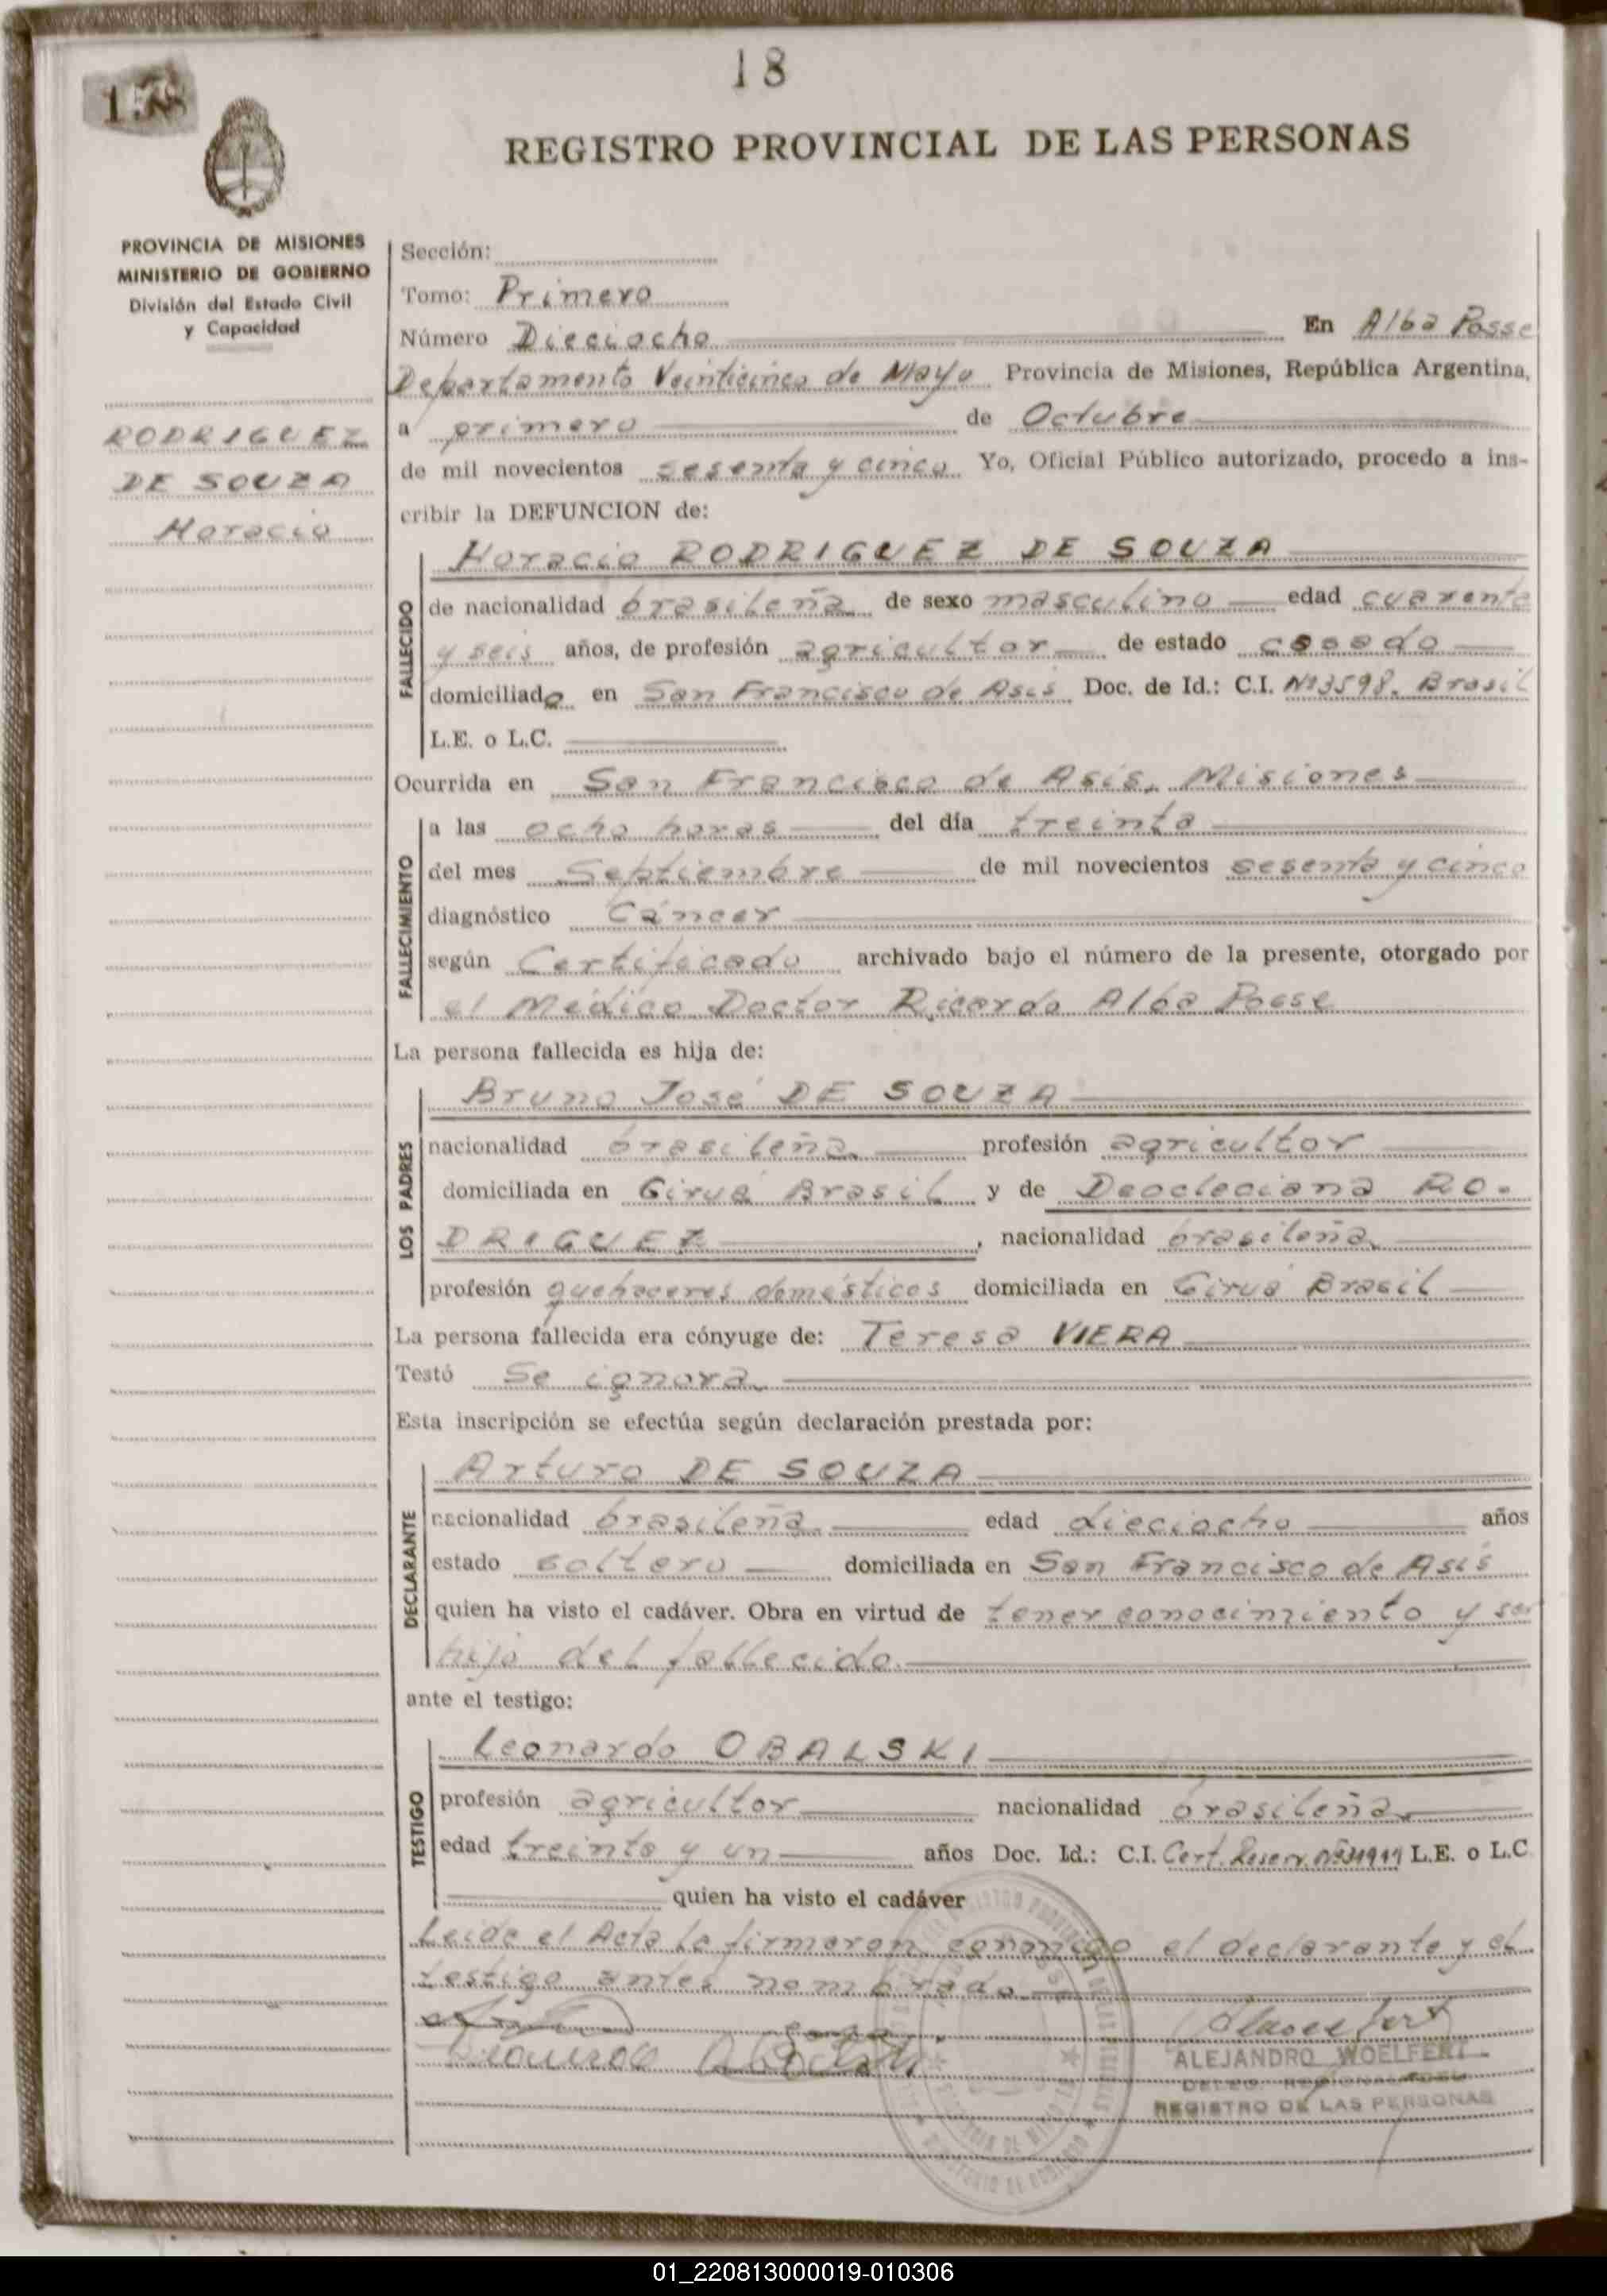 18
REGISTRO PROVINCIAL DE LAS PERSONAS
PROVINCIA DE MISIONES
MINISTERIO DE GOBIERNO
División del Estado Civil
y Capacidad
RODRIGUEZ
DE SOUZA
Horacio
Sección:
Tomo: Primero
Número Dieciocho En Alba Posse
Departamento Veinticinco de Mayo Provincia de Misiones, República Argentina,
a primero de Octubre
de mil novecientos sesenta y cinco Yo, Oficial Público autorizado, procedo a ins-
cribir la DEFUNCION de:
FALLECIDO
Horacio RODRIGUEZ DE SOUZA
de nacionalidad brasileña de sexo masculino edad cuarenta
y seis años, de profesión agricultor de estado casado
domiciliado en San Francisco de Asís Doc. de Id.: C.I. Nº3598. Brasil
L.E. o L.C.
Ocurrida en San Francisco de Asís, Misiones
FALLECIMIENTO
a las ocho horas del día treinta
del mes Septiembre de mil novecientos sesenta y cinco
diagnóstico Cáncer
según Certificado archivado bajo el número de la presente, otorgado por
el Médico Doctor Ricardo Alba Posse
La persona fallecida es hija de:
LOS PADRES
Bruno José DE SOUZA
nacionalidad brasileña profesión agricultor
domiciliada en Giruá Brasil y de Deocleciana RO-
DRIGUEZ, nacionalidad brasileña
profesión quehaceres domésticos domiciliada en Giruá Brasil
La persona fallecida era cónyuge de: Teresa VIERA
Testó Se ignora
Esta inscripción se efectúa según declaración prestada por:
DECLARANTE
Arturo DE SOUZA
nacionalidad brasileña edad dieciocho años
estado soltero domiciliada en San Francisco de Asís
quien ha visto el cadáver. Obra en virtud de tener conocimiento y ser
hijo del fallecido.
ante el testigo:
TESTIGO
Leonardo OBALSKI
profesión agricultor nacionalidad brasileña
edad treinta y un años Doc. Id.: C.I. Cert. Reserv. L.E. o L.C
quien ha visto el cadáver
Leída el Acta la firmaron conmigo el declarante y el
testigo antes nombrado.
ALEJANDRO WOELFERT
REGISTRO DE LAS PERSONAS
01_220813000019-010306